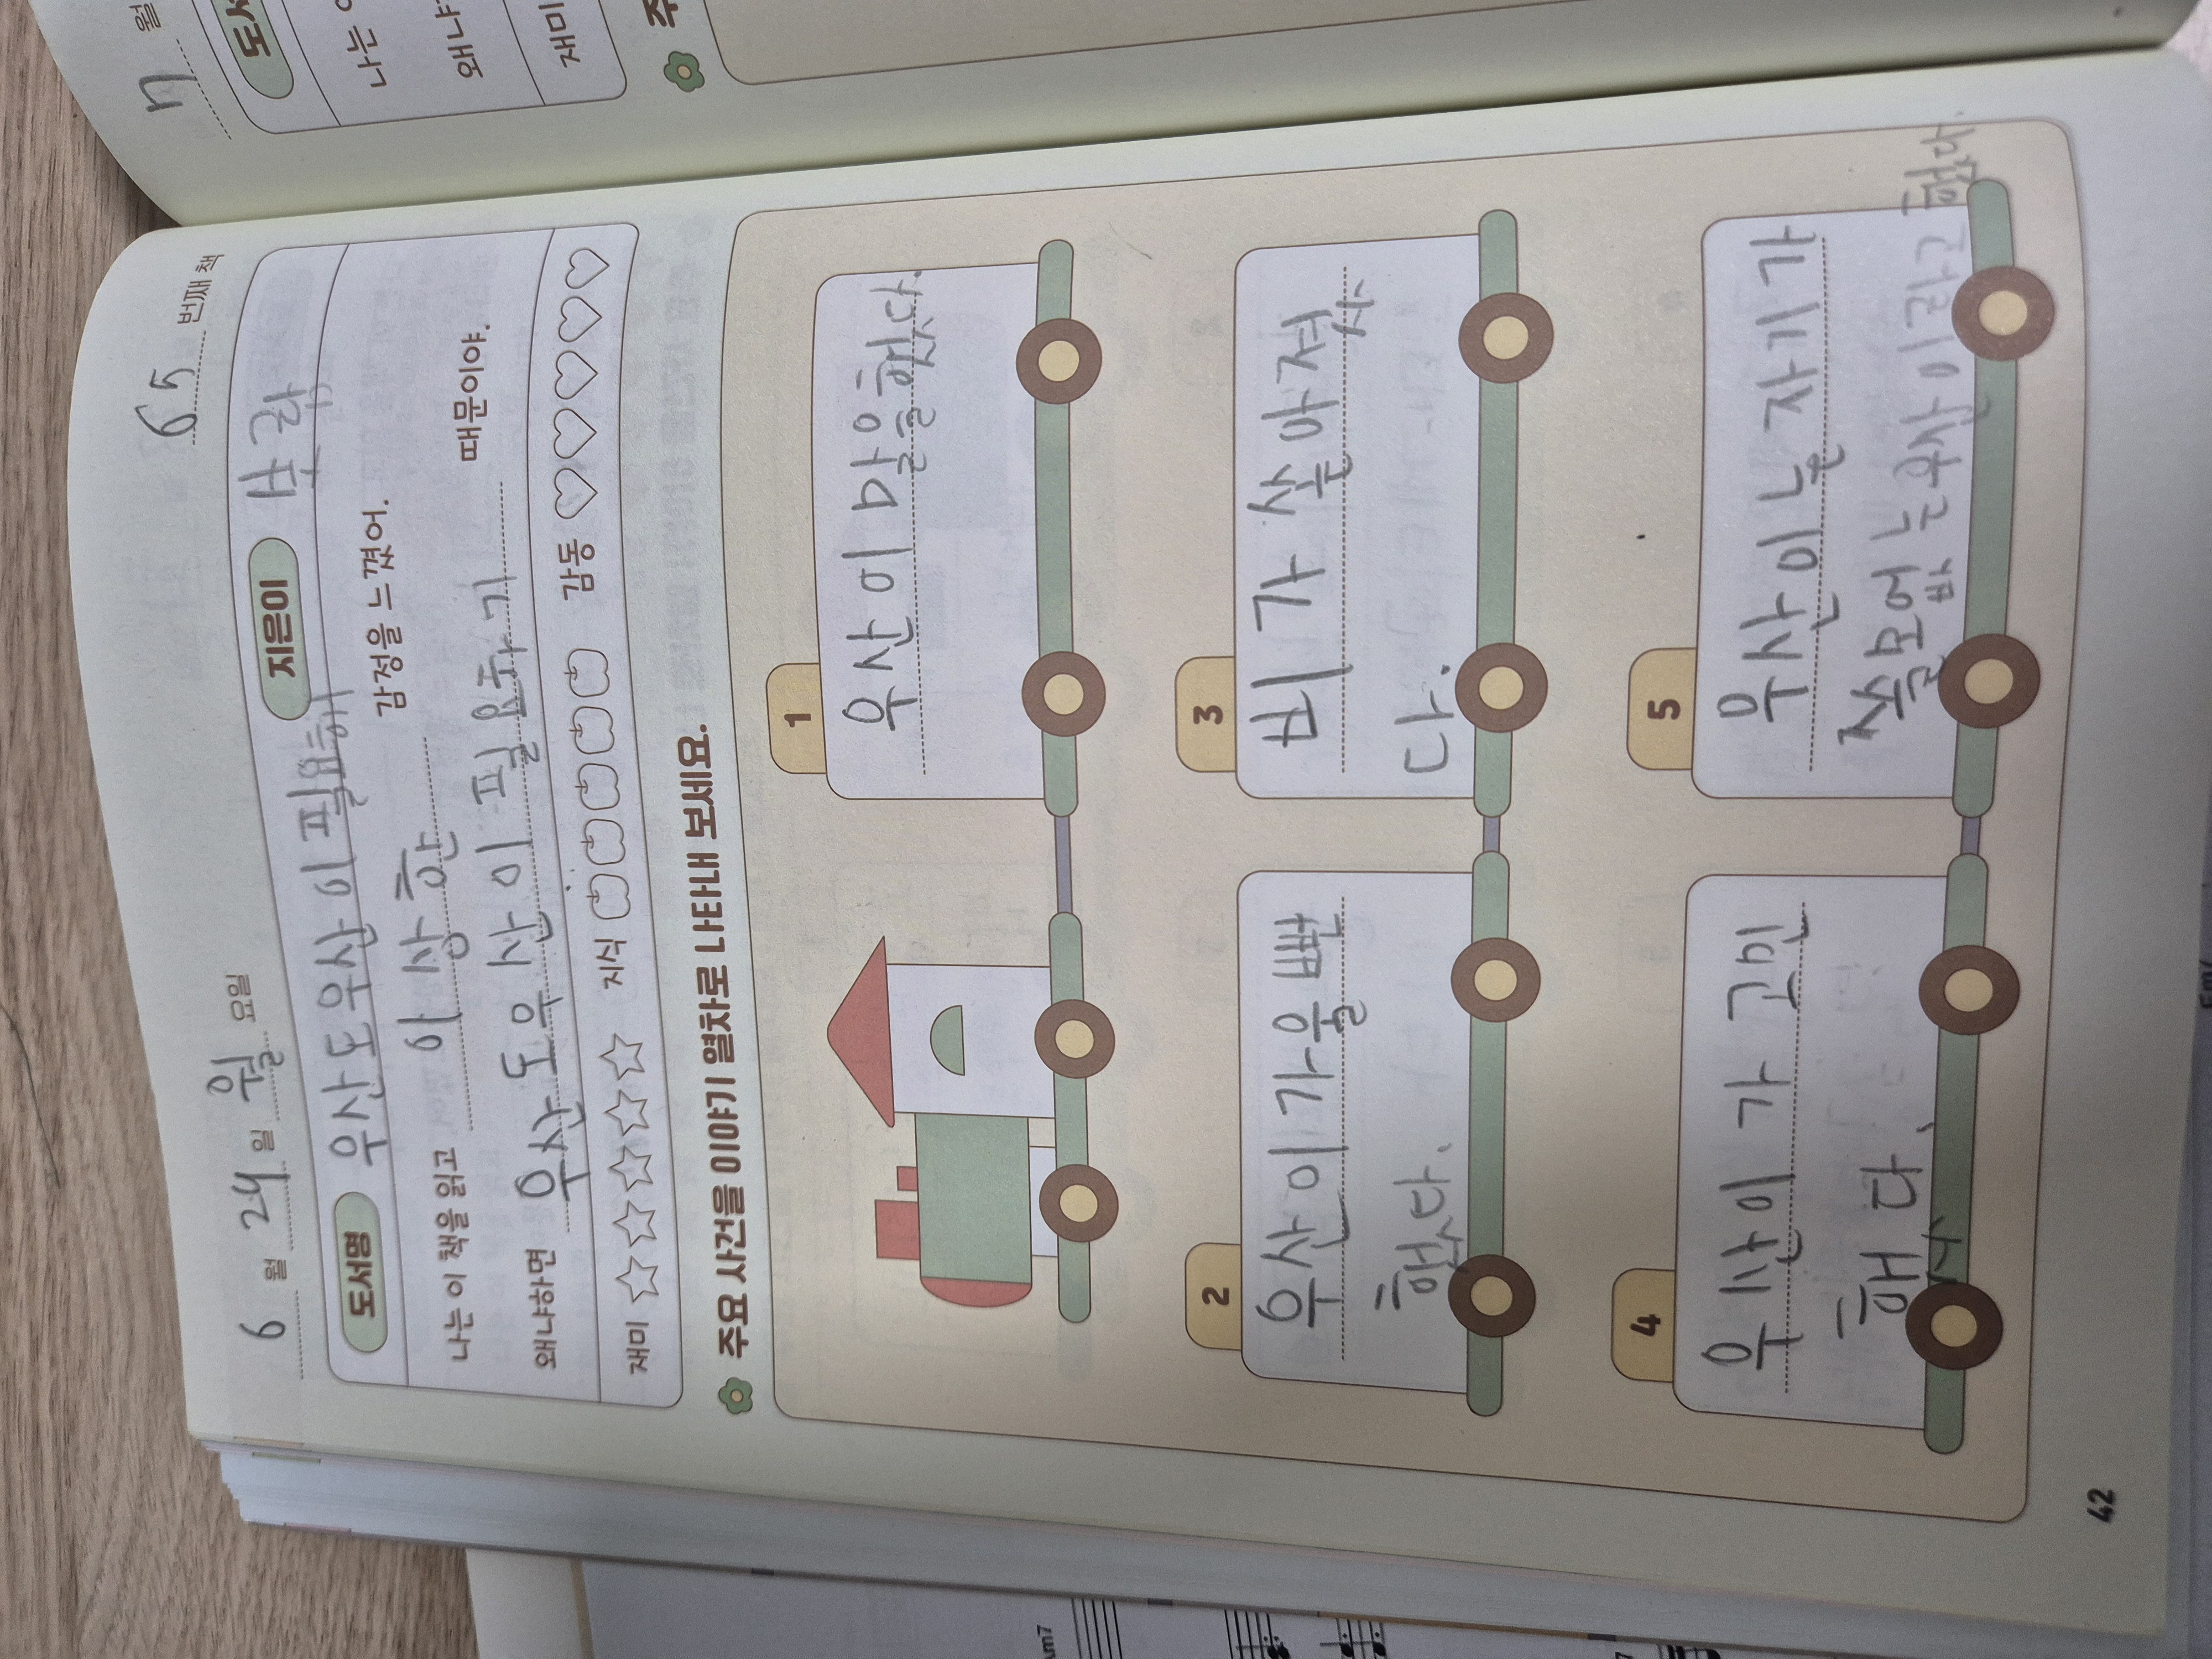 6 월 24 일 월 요일
65 번째 책
도서명 우산도 우산이 필요해
지은이
나는 이 책을 읽고 이상한 감정을 느꼈어.
왜냐하면 우산도 우산이 필요하기 때문이야.
재미
지식
감동
주요 사건을 이야기 열차로 나타내 보세요.
1
우산이 말을 했다.
2
우산이 가출
했다.
3
비가 쏟아졌
다.
4
우산이 가 고민
했다.
5
우산이 늘 자기가
쓸모없는 우산이라고 했다.
42
월
도서
나는 이
왜냐
재미
주
Am7